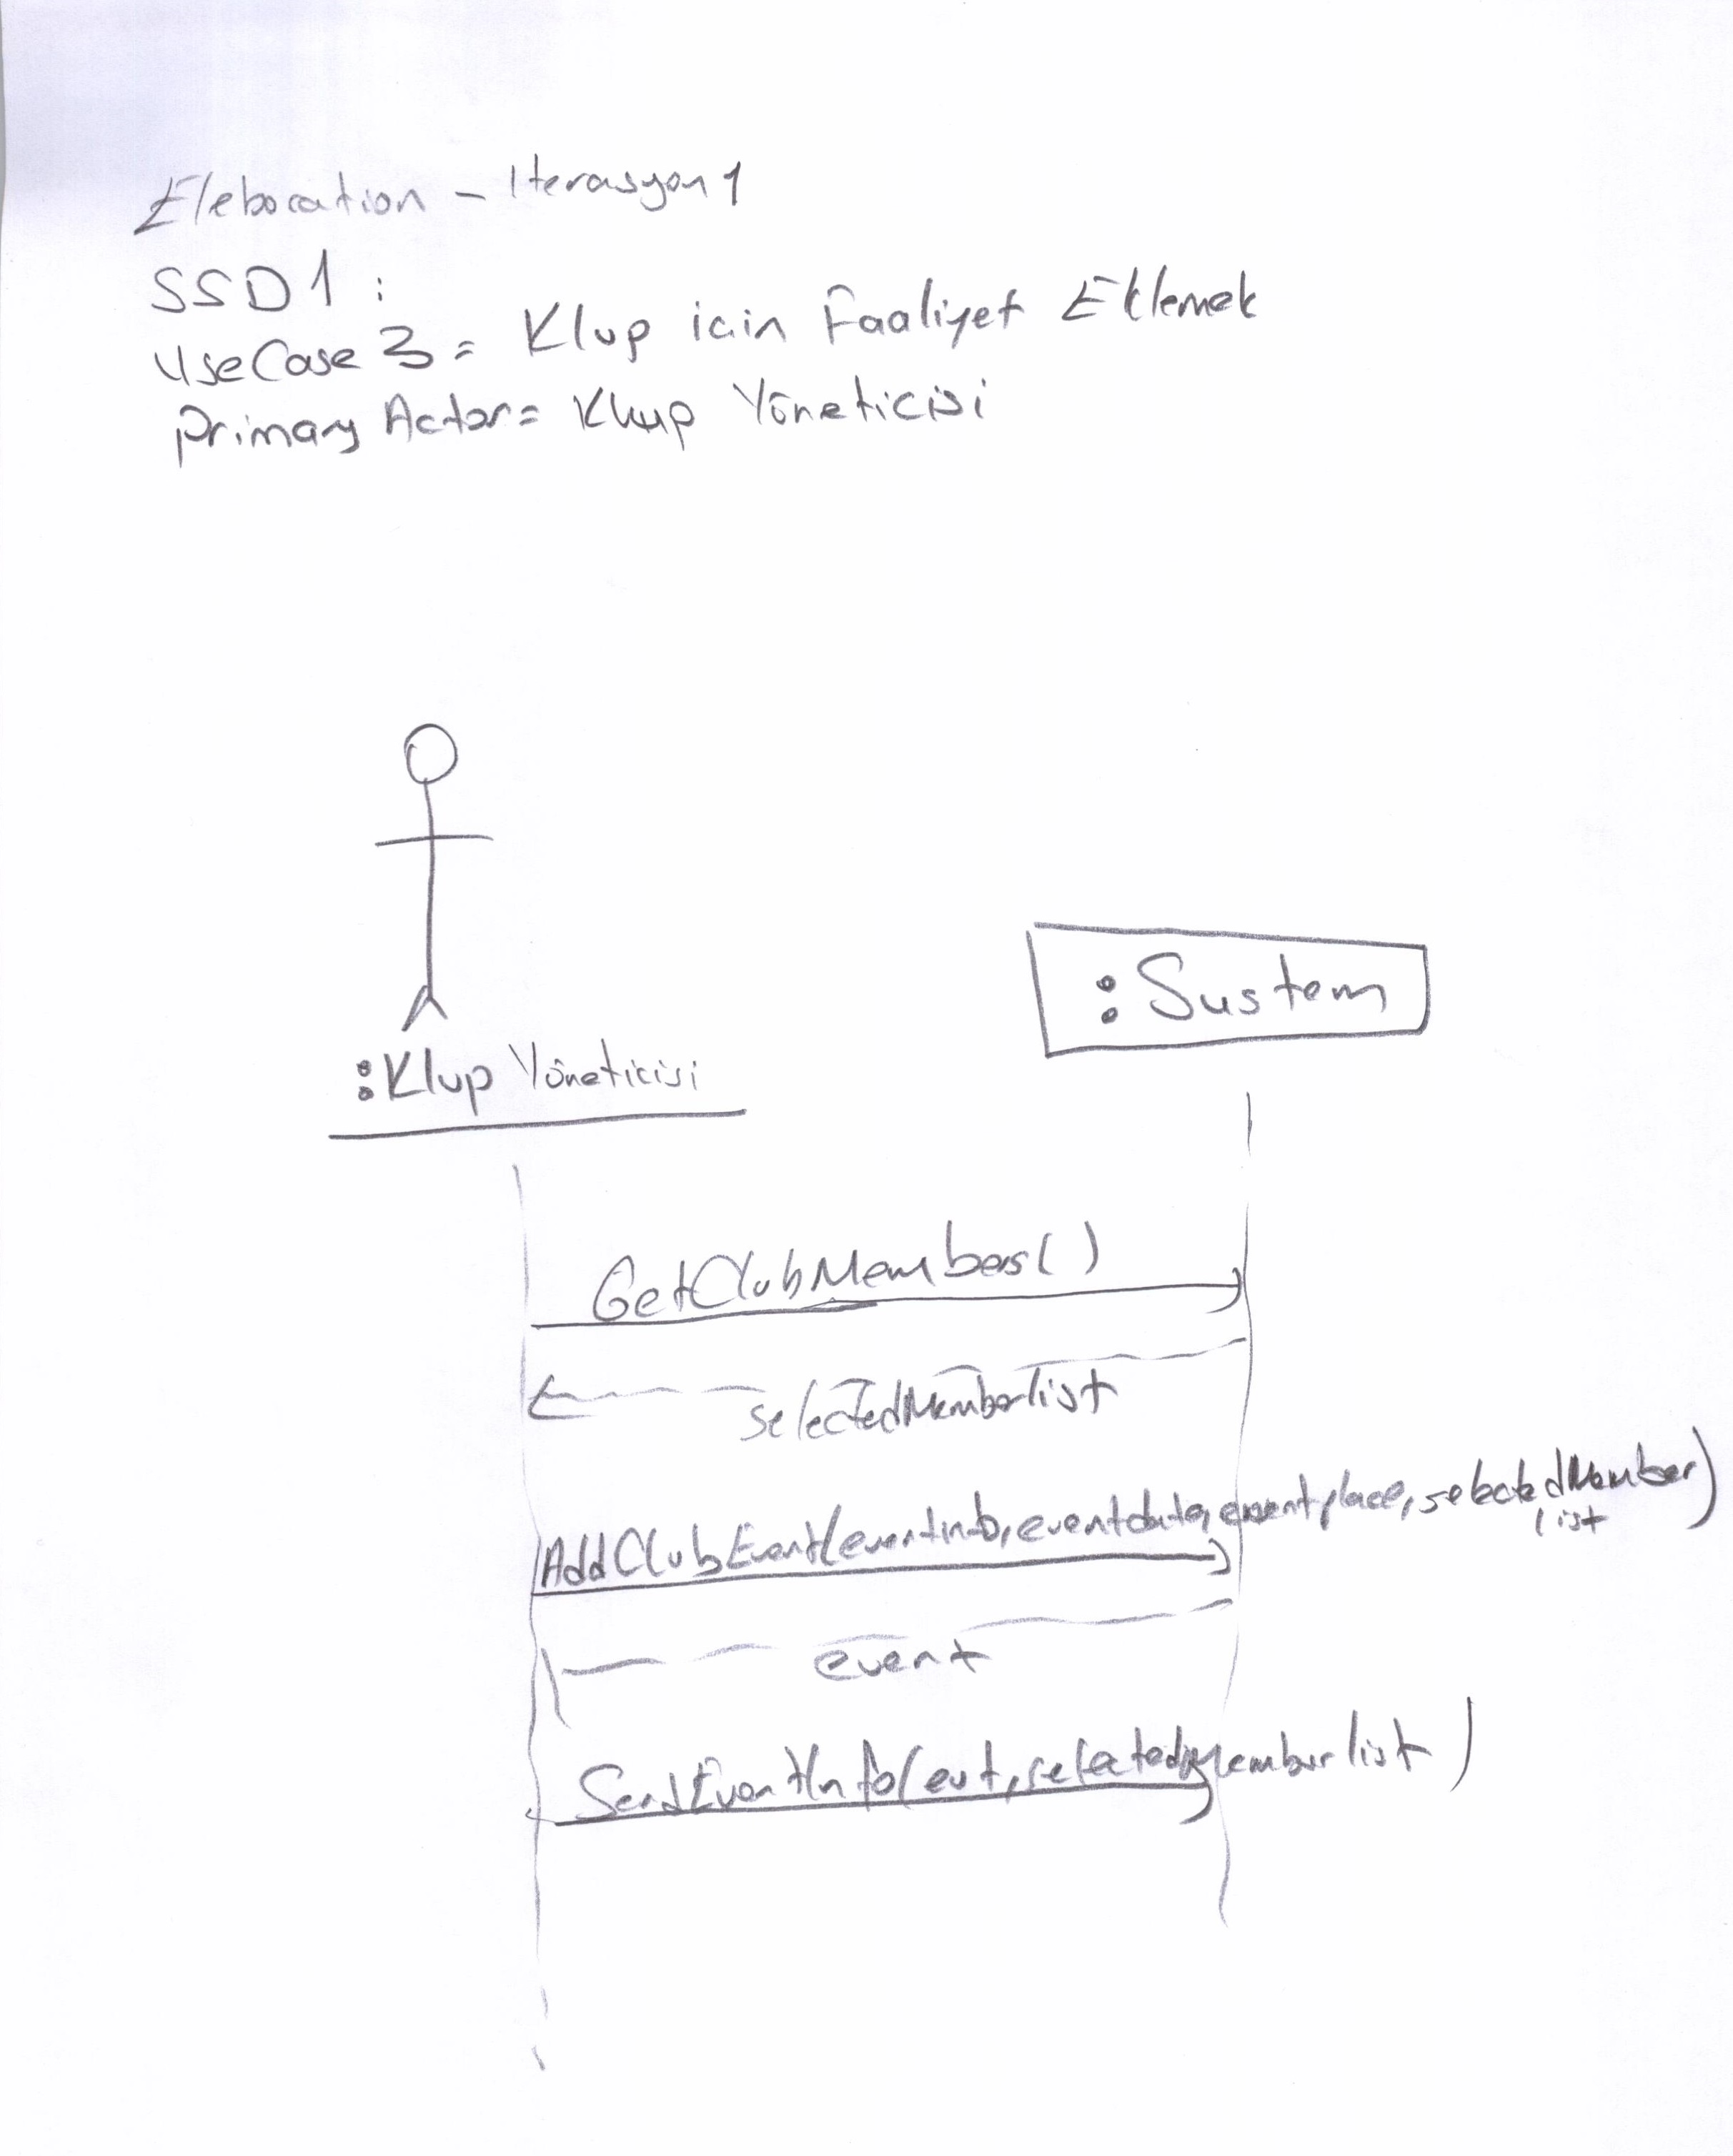 Eleboration - Iterasyon 1
SSD1 :
UseCase 3 = Klup icin Faaliyet Eklemek
Primary Actor = Klup Yöneticisi
:Sustem
:Klup Yöneticisi
GetClubMembers()
selectedMemberlist
AddClubEvent(eventinfo, eventdate, eventplace, selectedMember)
list
event
SendEventInfo(evt, selectedMemberlist)